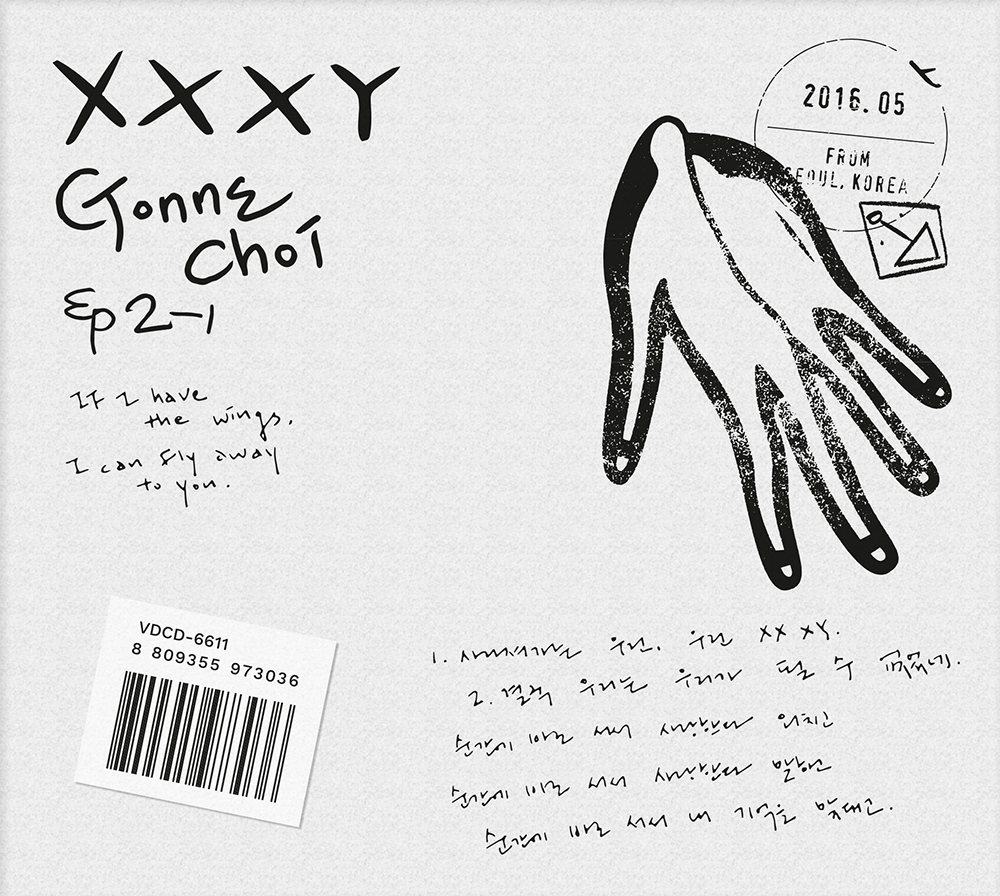 XXXY
Gonne
Choi
Ep 2-1
If I have
the wings,
I can fly away
to you.
2016.05
FROM
SEOUL, KOREA
VDCD-6611
8 809355 973036
1. 사라져가는 우린, 우린 XX XY.
2. 결국 우리는 우리가 될 수
순간에 바로 서서 사랑한다 외치고
순간에 바로 서서 사랑한다
순간에 바로 서서 내 기억을 맞대고.